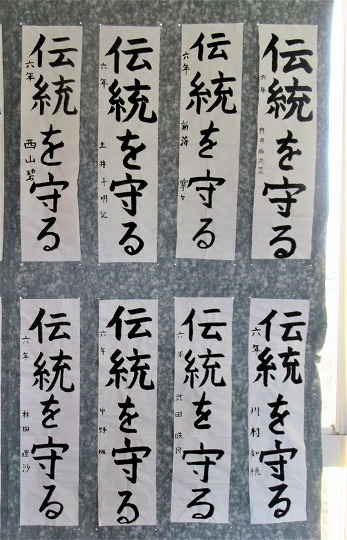 伝統を守る
六年
伝統を守る
六年 新蒔 寧々
伝統を守る
六年 土井千明記
伝統を守る
六年 西山碧
伝統を守る
六年 川村知穂
伝統を守る
六年 武田咲良
伝統を守る
六年 中野楓
伝統を守る
六年 林田理沙